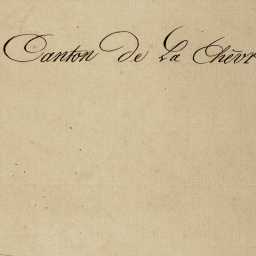 Canton de La Chèvr